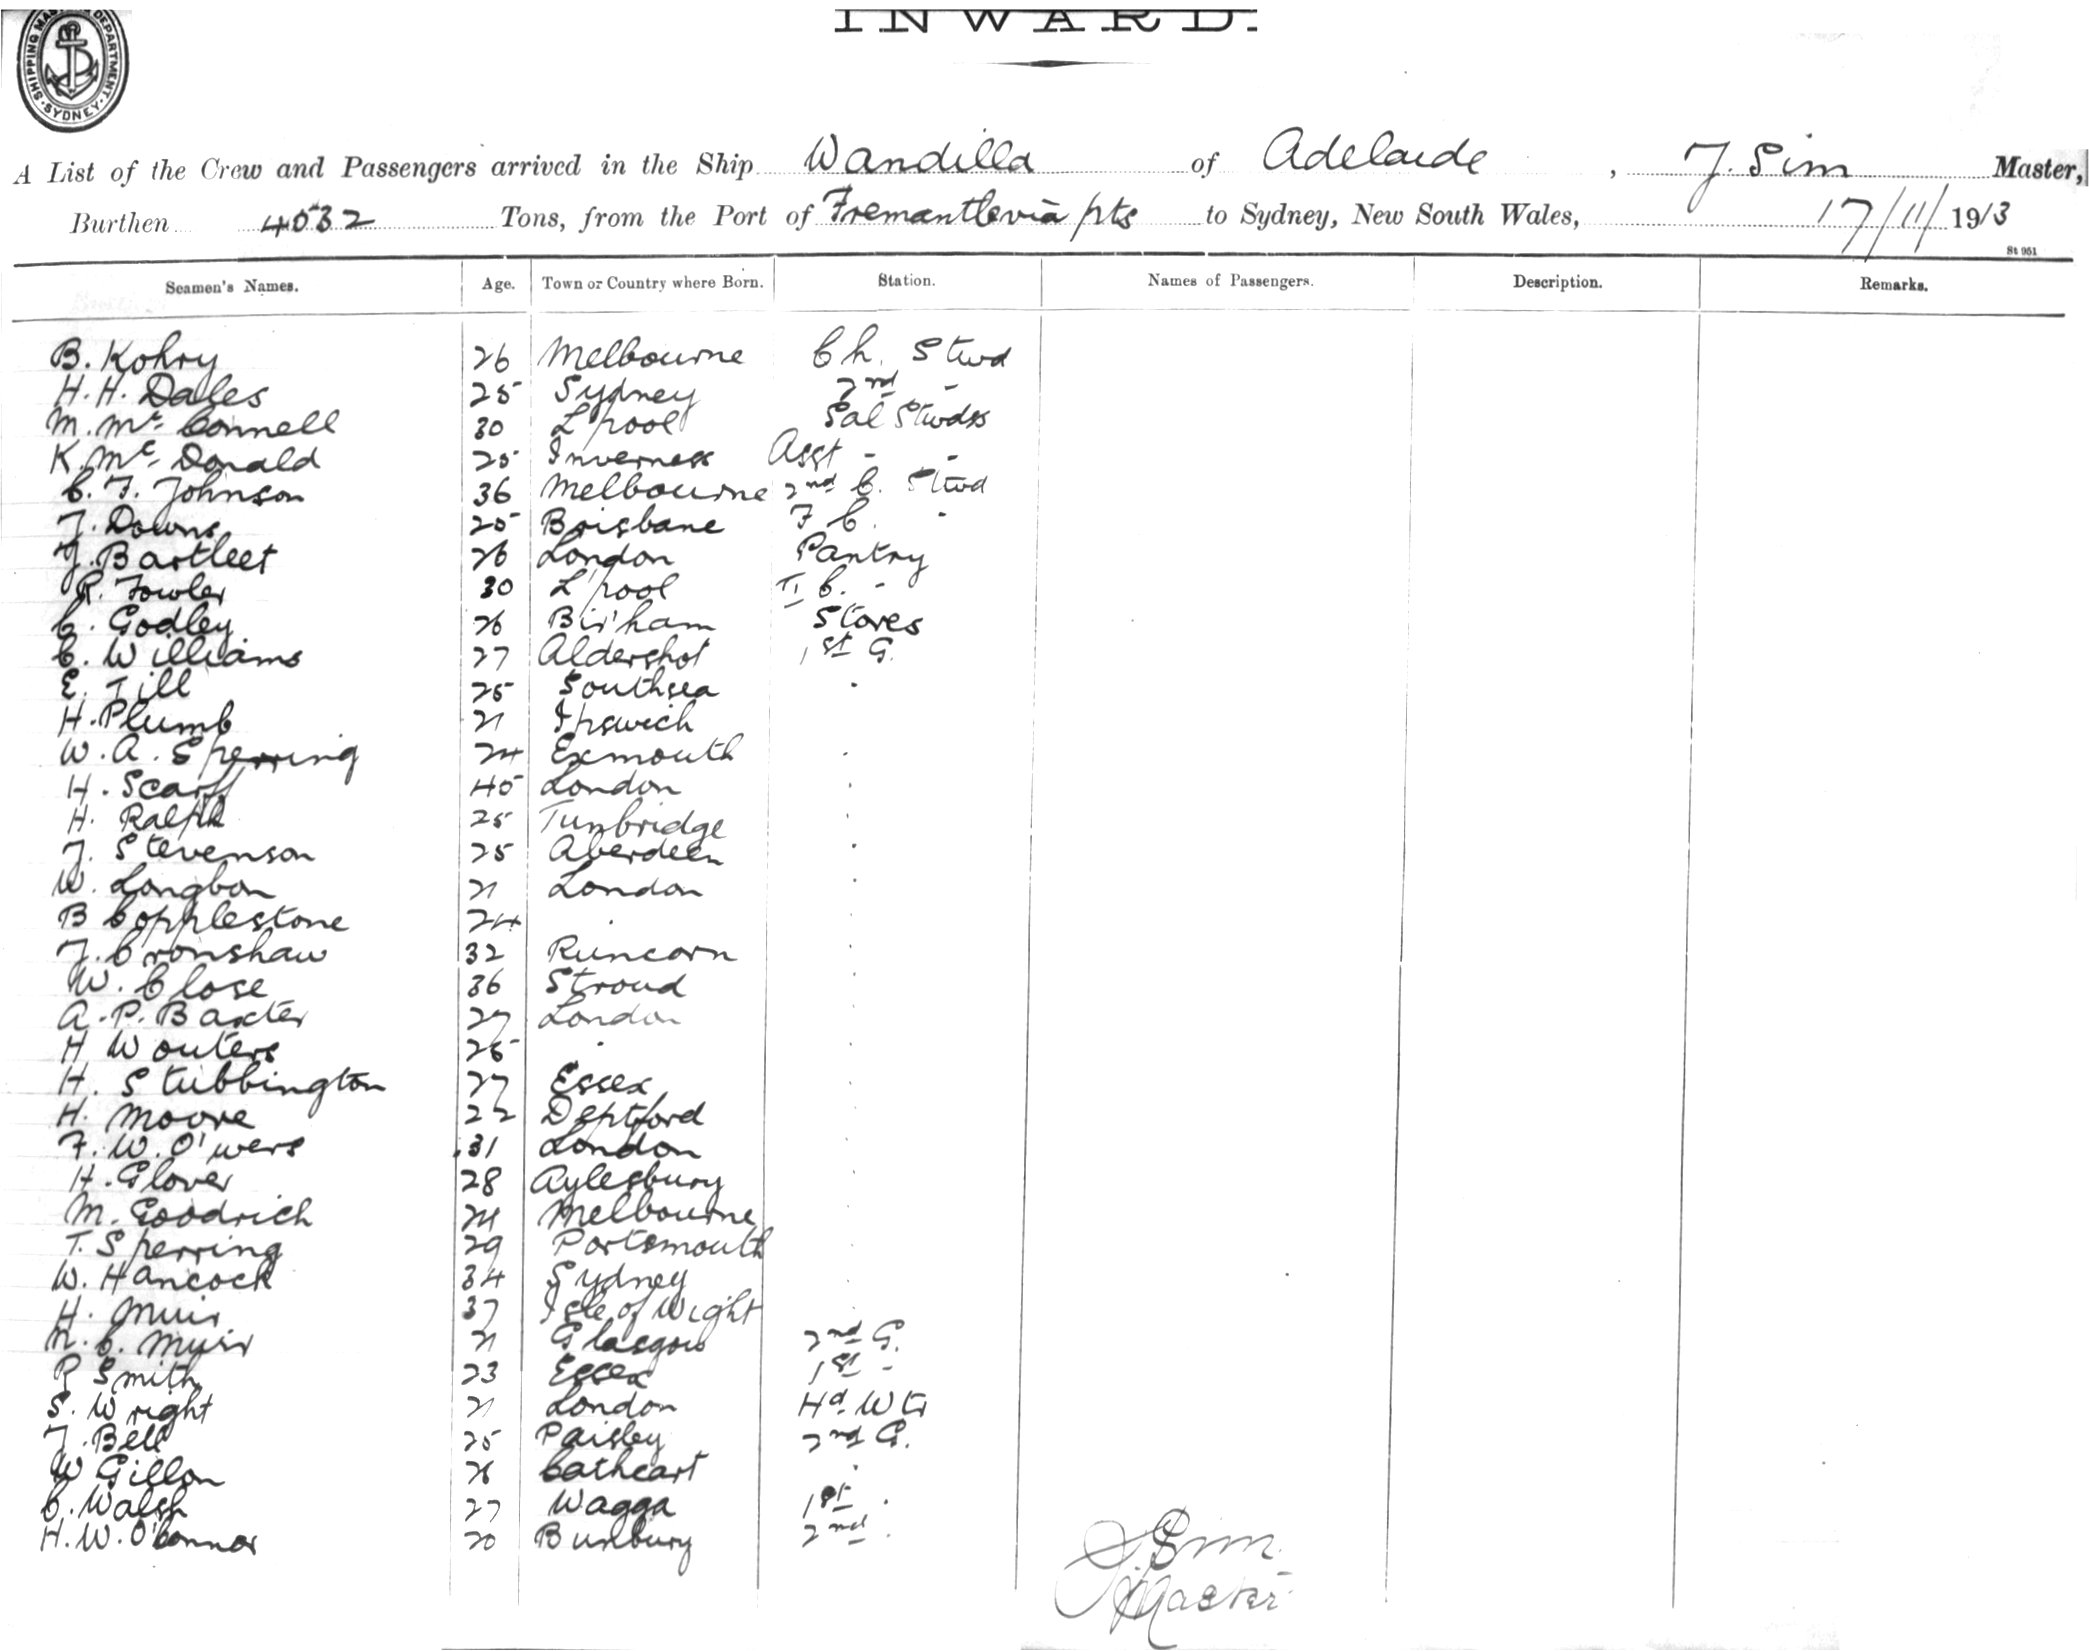 INWARD.
SHIPPING MASTER'S DEPARTMENT SYDNEY
A List of the Crew and Passengers arrived in the Ship Wandilla of Adelaide, J. Sim Master,
Burthen 4032 Tons, from the Port of Fremantle via pts to Sydney, New South Wales, 17/11/1913
St 951
Seamen's Names. Age. Town or Country where Born. Station. Names of Passengers. Description. Remarks.
B. Kohry 26 Melbourne Ch. Stwd
H. H. Dales 25 Sydney 2nd -
M. Mc Connell 30 L'pool Sal Stwdss
K. Mc Donald 25 Inverness Asst - -
C. F. Johnson 36 Melbourne 2nd C. Stwd
J. Downs 25 Brisbane F C. -
J. Bartleet 26 London Pantry
R. Fowler 30 L'pool II C. -
C. Godley 26 Bir'ham Stores
C. Williams 27 Aldershot 1st G.
E. Till 25 Southsea .
H. Plumb 21 Ipswich
W. A. Sperring 24 Exmouth .
H. Scarff 45 London .
H. Ralph 25 Tunbridge .
J. Stevenson 25 Aberdeen .
W. Longbon 21 London .
B Copplestone 24 . .
J. Cronshaw 32 Runcorn .
W. Close 36 Stroud .
A. P. Baxter 27 London .
H Wouters 25 . .
H. Stubbington 27 Essex .
H. Moore 22 Deptford .
F. W. O'wers 31 London .
H. Glover 28 Aylesbury .
M. Goodrich 24 Melbourne .
T. Sperring 29 Portsmouth .
W. Hancock 34 Sydney .
H. Muir 37 Isle of Wight .
N. C. Muir 21 Glasgow 2nd G.
R Smith 23 Essex 1st -
S. Wright 21 London Hd. Wtr
J. Bell 25 Paisley 2nd G.
W Gillon 26 Cathcart .
C. Walsh 27 Wagga 1st .
H. W. O'Connor 20 Bunbury 2nd .
J. Sim
Master